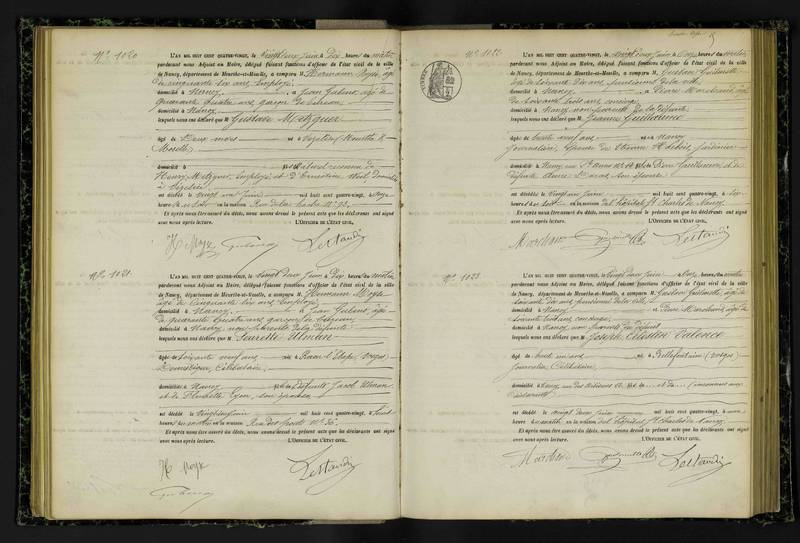 N° 1020
L'AN MIL HUIT CENT QUATRE-VINGT, le vingt deux juin à Dix heures du matin
pardevant nous Adjoint au Maire, délégué faisant fonctions d'officier de l'état civil de la ville
de Nancy, département de Meurthe-et-Moselle, a comparu M. Hermann Moyse, âgé
de cinquante six ans, Employé
domicilié à Nancy et Jean Gubens, âgé de
quarante quatre ans, garçon de bureau
domicilié à Nancy
lesquels nous ont déclaré que M Gustave Metzguer
âgé de Deux mois né à Vézelise (Meurthe &
Moselle)
domicilié à fils naturel reconnu de
Henry Metzguer, Employé, et d'Ernestine Weil, domiciliés
à Vézelise
est décédé le vingt un juin mil huit cent quatre-vingt, à
heures du soir en la maison Rue de la hache N° 93
Et après nous être assuré du décès, nous avons dressé le présent acte que les déclarants ont signé
avec nous après lecture. L'OFFICIER DE L'ÉTAT CIVIL,
H Moyse Gubens Lestaudin
N° 1021
L'AN MIL HUIT CENT QUATRE-VINGT, le vingt deux juin à Dix heures du matin
pardevant nous Adjoint au Maire, délégué faisant fonctions d'officier de l'état civil de la ville
de Nancy, département de Meurthe-et-Moselle, a comparu M. Hermann Moyse
âgé de cinquante six ans, Employé
domicilié à Nancy et Jean Gubens, âgé
de quarante quatre ans garçon de bureau
domicilié à Nancy non parents de la défunte
lesquels nous ont déclaré que M Laurette Ulman
âgée de soixante neuf ans née à Raon l'Etape (Vosges)
Domestique, Célibataire
domiciliée à Nancy fille de défunts Jacob Ulman
et de Lyon, son épouse
est décédée le vingt un juin mil huit cent quatre-vingt, à
heures du matin en la maison Rue des ponts N° 36
Et après nous être assuré du décès, nous avons dressé le présent acte que les déclarants ont signé
avec nous après lecture. L'OFFICIER DE L'ÉTAT CIVIL,
H Moyse Lestaudin
Gubens
N° 1022
L'AN MIL HUIT CENT QUATRE-VINGT, le vingt deux juin à Onze heures du matin
pardevant nous Adjoint au Maire, délégué faisant fonctions d'officier de l'état civil de la ville
de Nancy, département de Meurthe-et-Moselle, a comparu M. Gustave
âgé de soixante dix ans pensionné de la ville
domicilié à Nancy et Pierre Marchand âgé
de soixante trois ans concierge
domicilié à Nancy non parents de la défunte
lesquels nous ont déclaré que M Jeanne Guillaume
âgée de trente neuf ans née à Nancy
journalière, épouse de Etienne jardinier
domiciliée à Nancy rue Ste Anne N° 14 fille de Pierre Guillaume, et de
défunte Anne son épouse
est décédée le vingt un juin mil huit cent quatre-vingt, à
heures du soir en la maison de l'hôpital St Charles de Nancy
Et après nous être assuré du décès, nous avons dressé le présent acte que les déclarants ont signé
avec nous après lecture. L'OFFICIER DE L'ÉTAT CIVIL,
Marchand Lestaudin
N° 1023
L'AN MIL HUIT CENT QUATRE-VINGT, le vingt deux juin à Onze heures du matin
pardevant nous Adjoint au Maire, délégué faisant fonctions d'officier de l'état civil de la ville
de Nancy, département de Meurthe-et-Moselle, a comparu M. Gustave âgé de
soixante dix ans pensionné de la ville
domicilié à Nancy et Pierre Marchand, âgé de
soixante trois ans concierge
domicilié à Nancy non parents du défunt
lesquels nous ont déclaré que M Joseph Célestin Valence
âgé de huit ans né à Bellefontaine (Vosges)
journalier, Célibataire
domicilié à Nancy rue des fils de ... et de ... (inconnus aux
déclarants)
est décédé le vingt deux juin mil huit cent quatre-vingt, à
heures du matin en la maison de l'hôpital St Charles de Nancy
Et après nous être assuré du décès, nous avons dressé le présent acte que les déclarants ont signé
avec nous après lecture. L'OFFICIER DE L'ÉTAT CIVIL,
Marchand Lestaudin